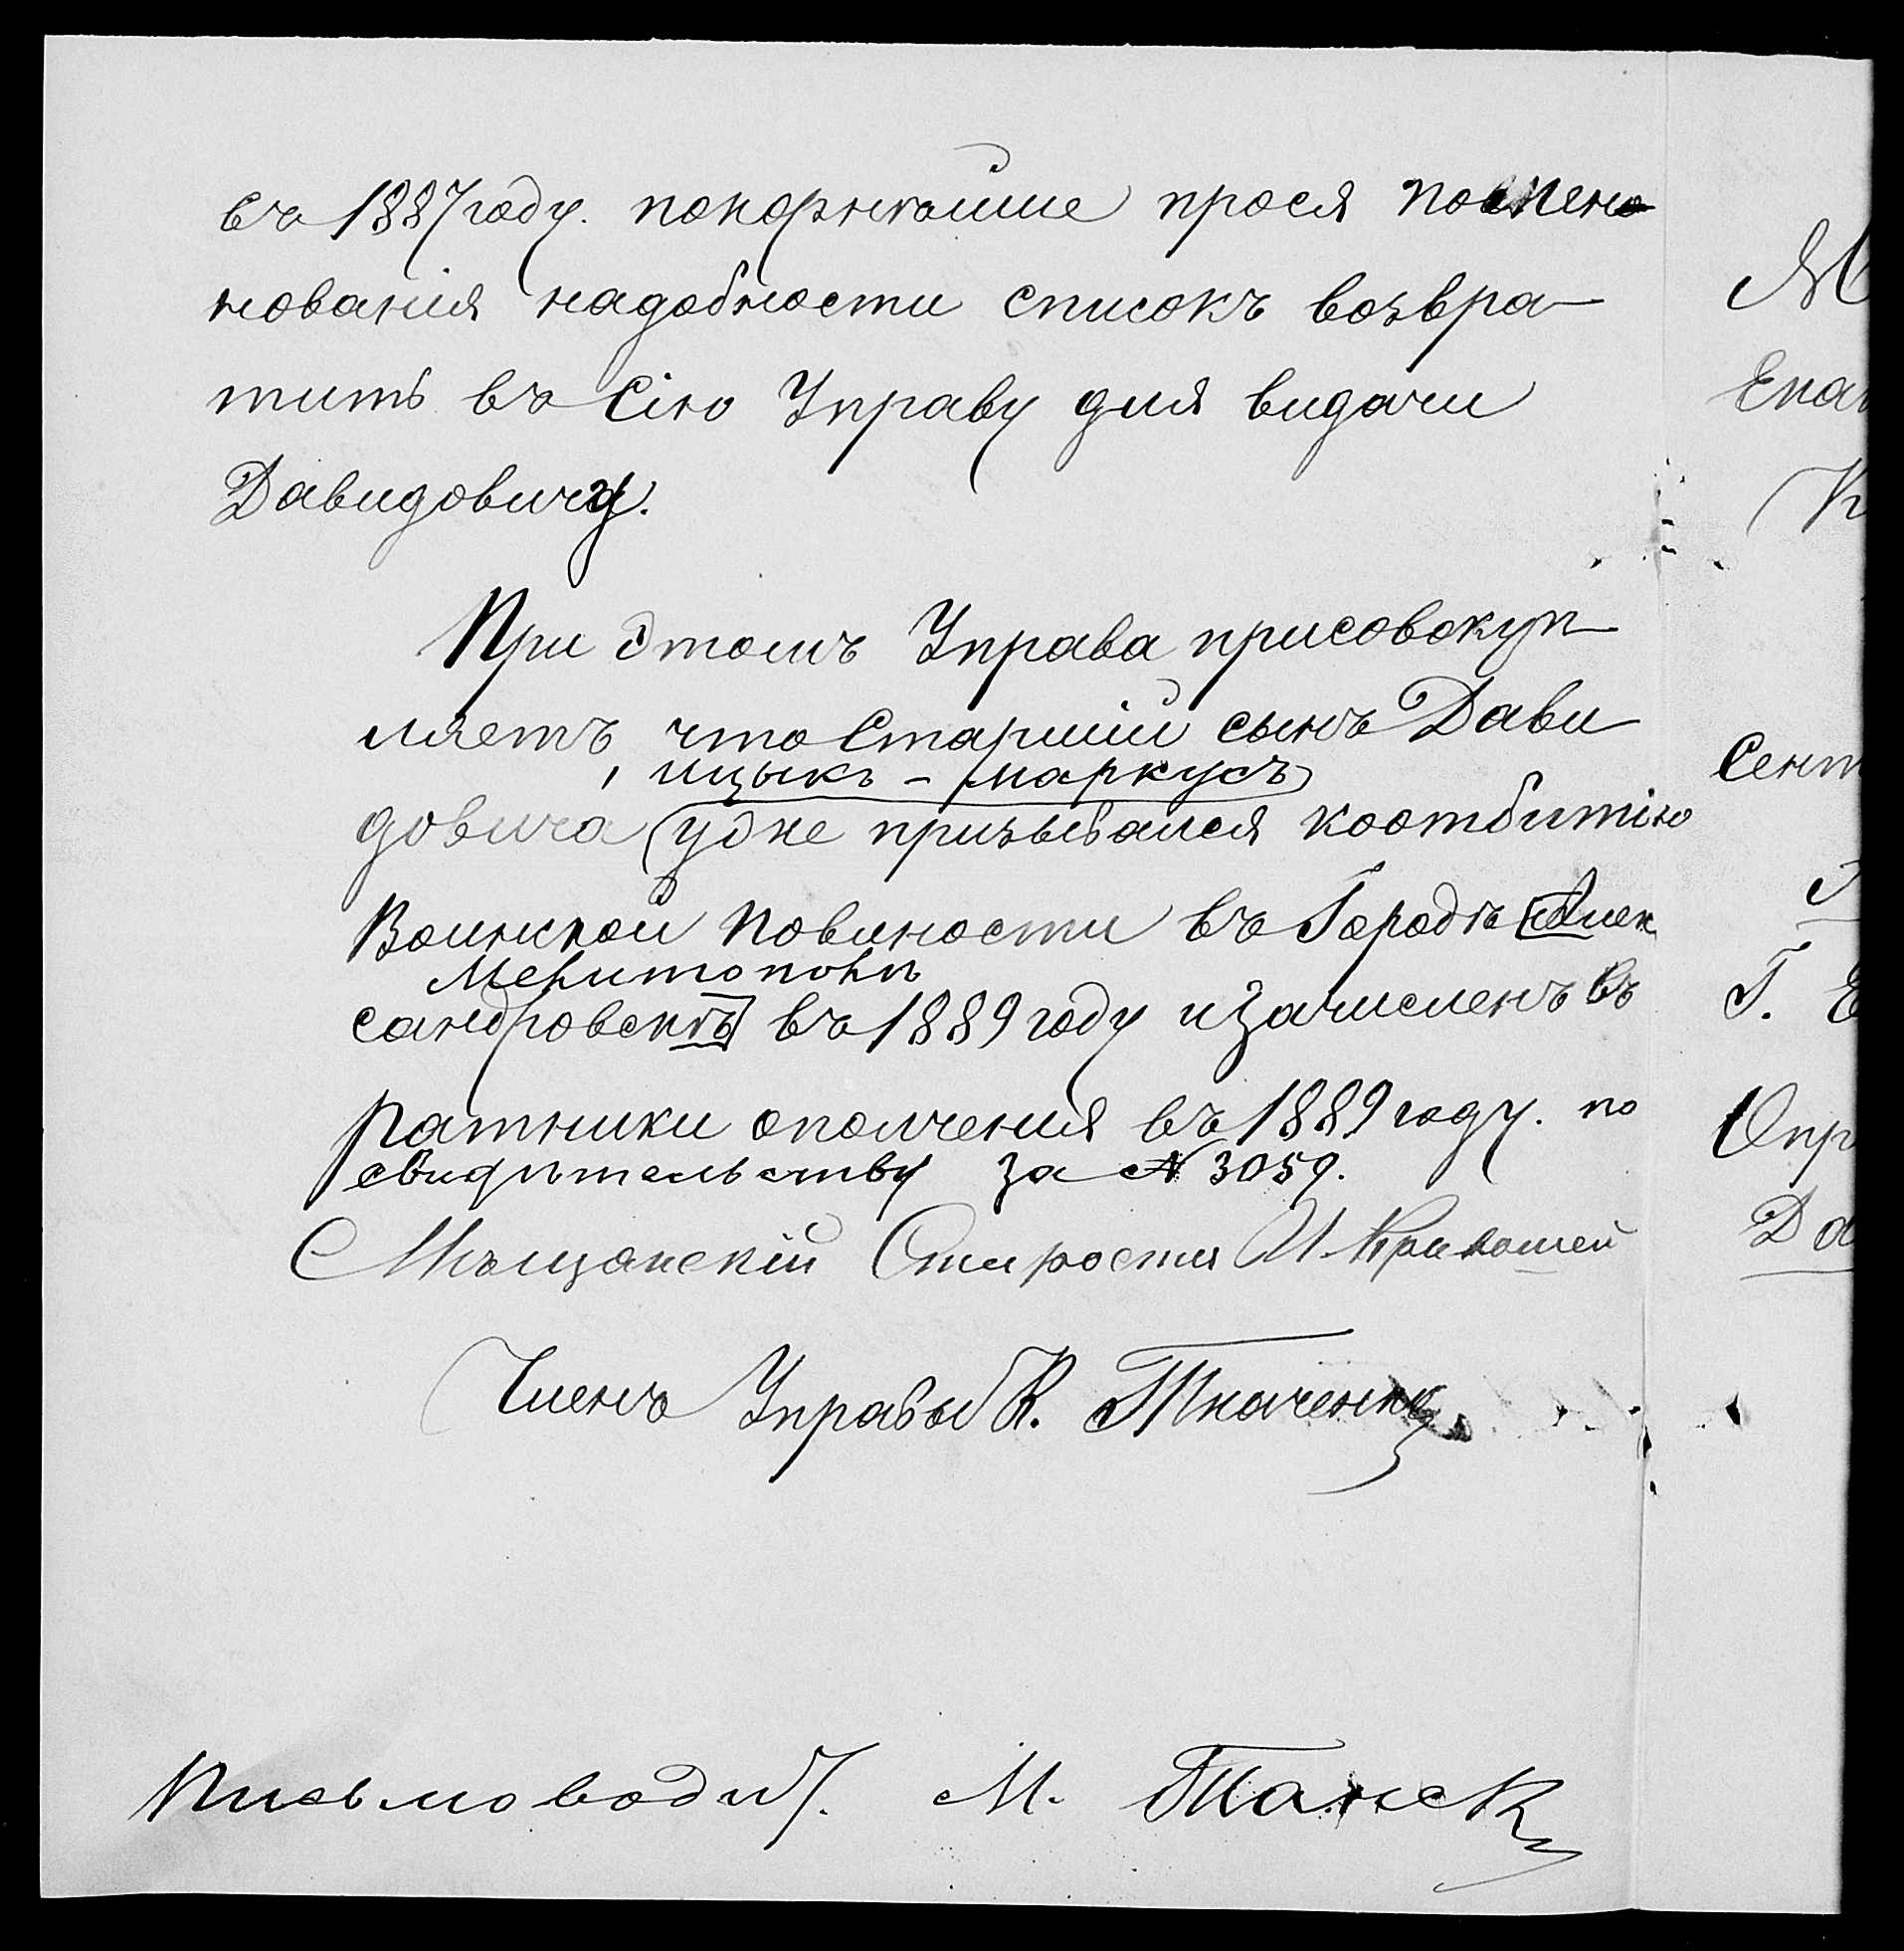 въ 1887 году. покорнѣйше прося по
нованія надобности списокъ возвра-
тить въ Сію Управу для видачи
Давидовичу.
При этомъ Управа присовокуп-
ляетъ, что Старшій сынъ Дави
, ицыкъ - маркусъ
довича уоже призывался коотбитію
Воинской повиности въ Городѣ [Алек
Мелитополѣ
сандровскѣ] въ 1889 году изачисленъ въ
Ратники ополченія въ 1889 году. по
свидѣтельству за № 3059.
Мѣщанскій Староста И Кривошей
Членъ Управы К. Ткаченко
Письмоводит. М. Танск
М
Екат
К
Сент
Г. Е
Опр
Да